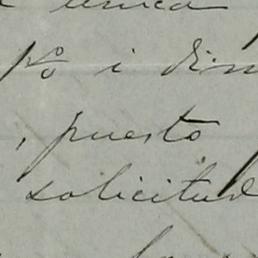 unica
No i din
, puesto
solicitud